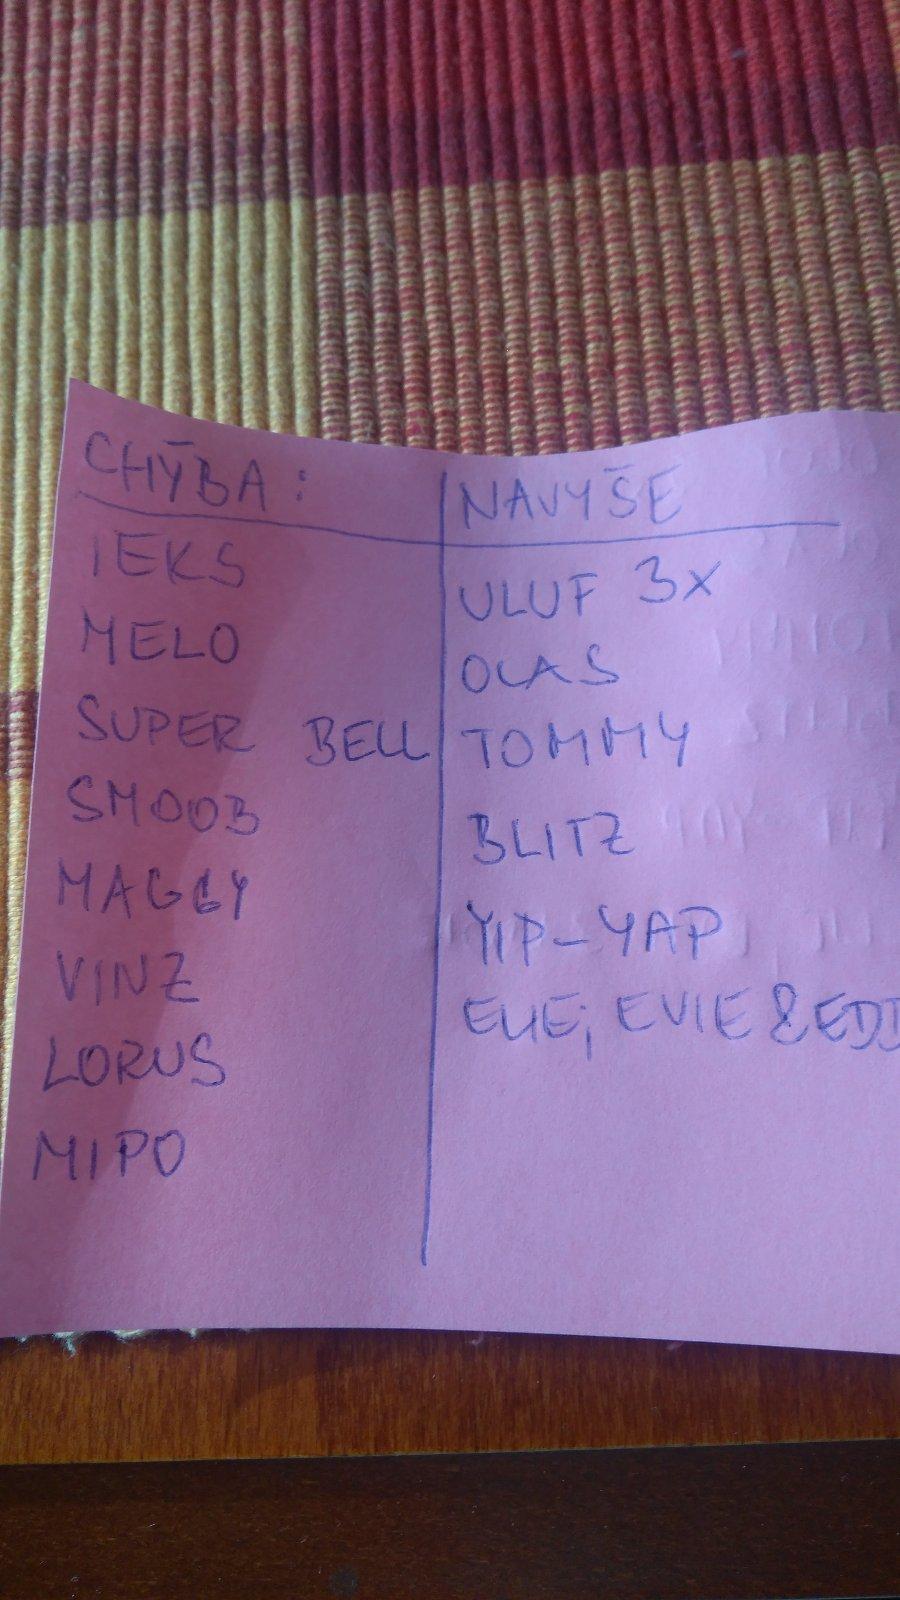 CHÝBA:
IEKS
MELO
SUPER BELL
SMOOB
MAGGY
VINZ
LORUS
MIPO
NAVYŠE
ULUF 3x
OLAS
TOMMY
BLITZ
YIP-YAP
ELIE, EVIE & EDD